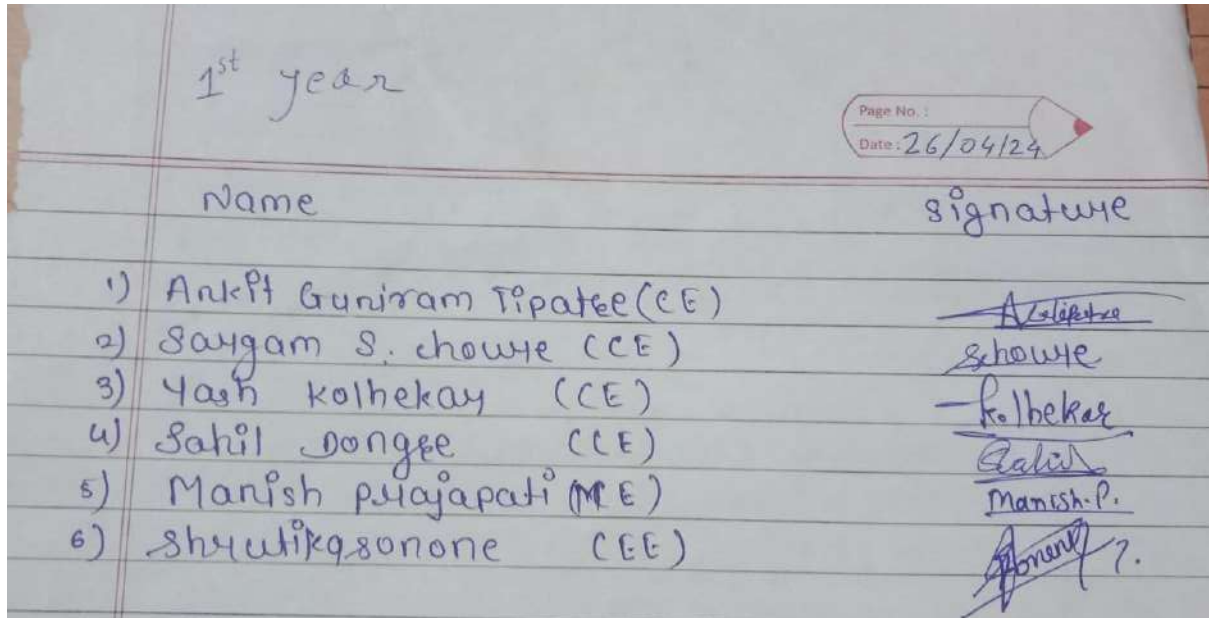 1st year
Page No. :
Date : 26/04/24
Name signature
1) Ankit Guniram Tipatre (CE)
2) Sargam S. chowre (CE) Schowre
3) Yash Kolhekar (CE) Kolhekar
4) Sahil Dongre (CE) Sahil
5) Manish prajapati (ME) Manish.P.
6) Shrutikasonone (EE)